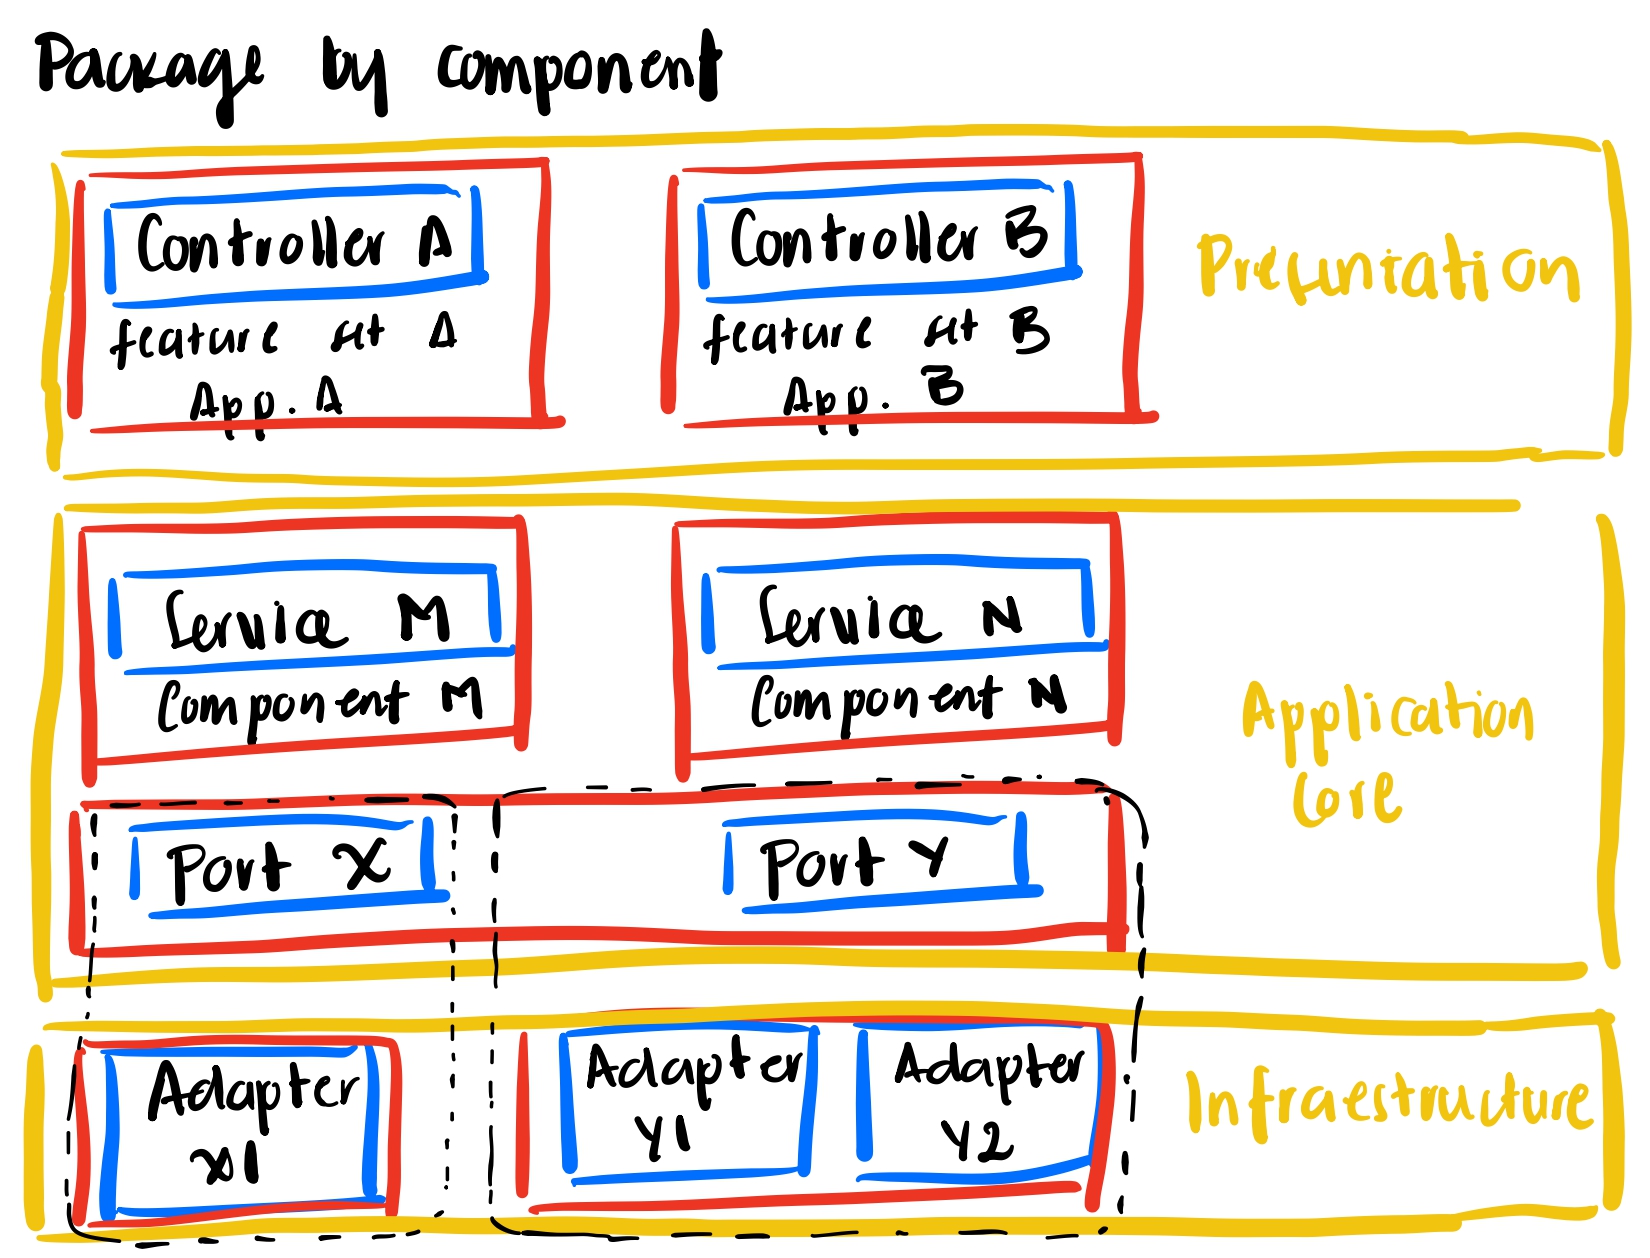 Package by component
Controller A
feature set A
App. A
Controller B
feature set B
App. B
Presentation
Service M
Component M
Service N
Component N
Application
Core
Port X
Port Y
Adapter
X1
Adapter
Y1
Adapter
Y2
Infraestructure